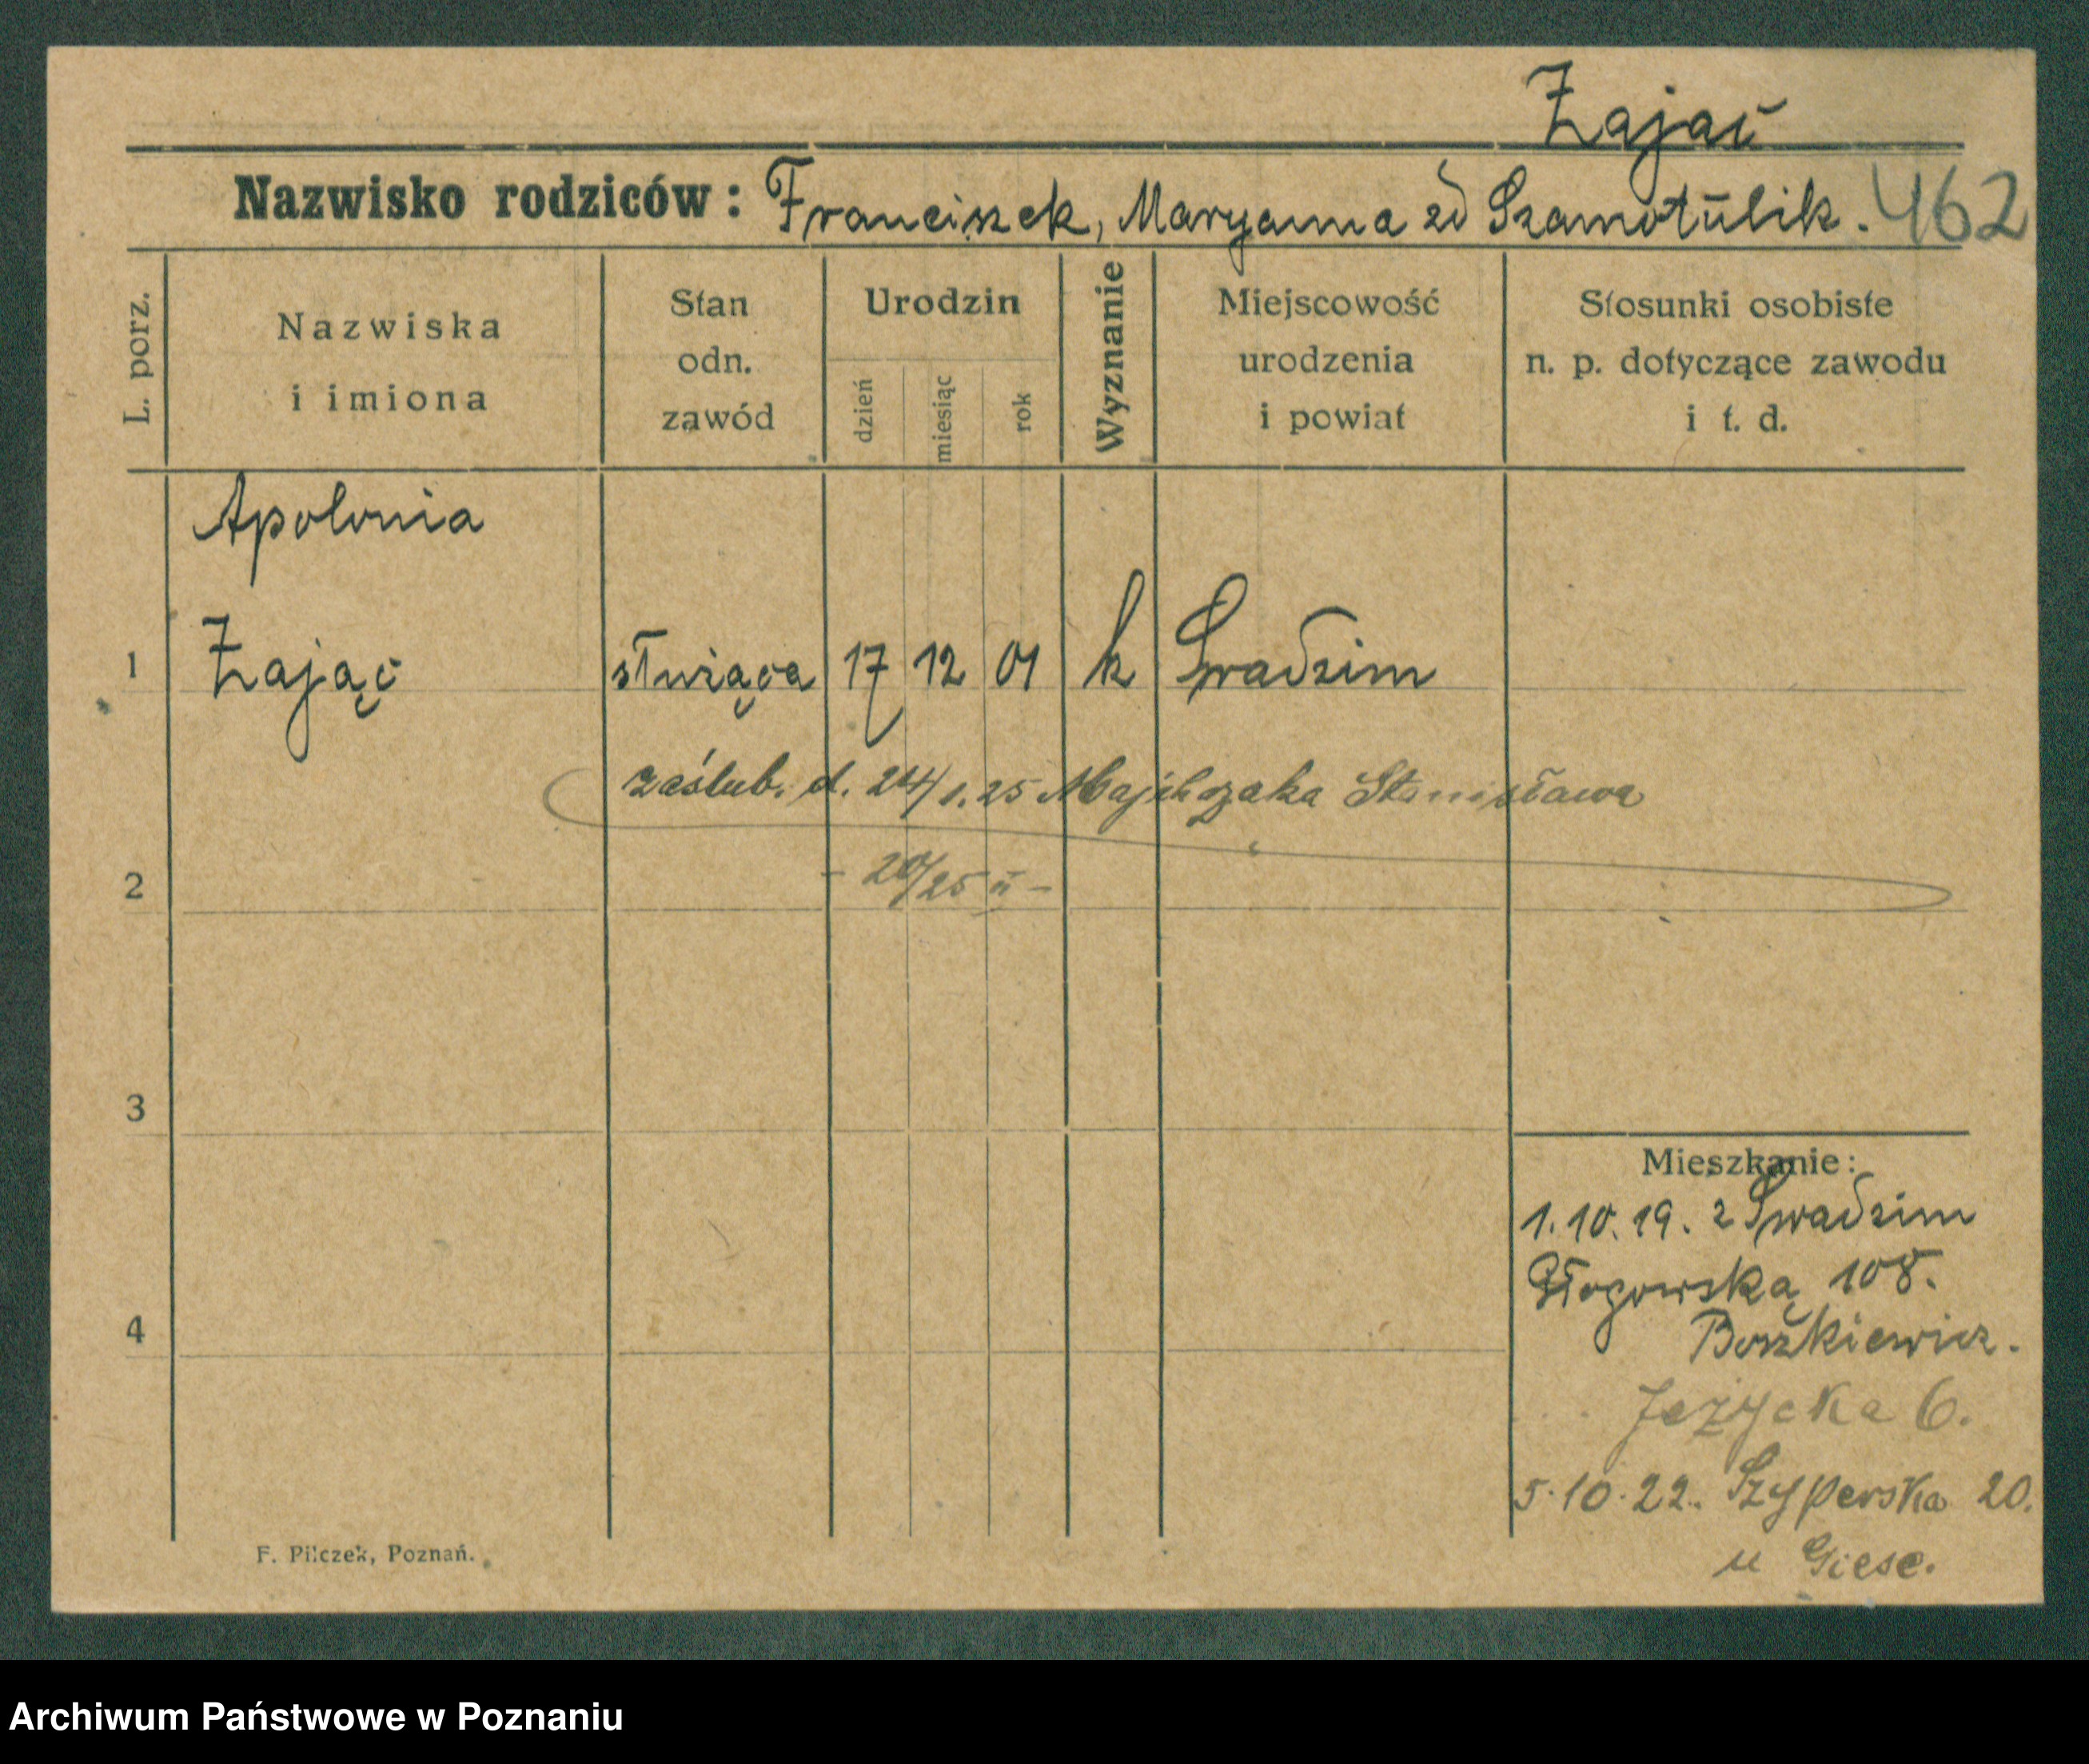 Zając
Nazwisko rodziców: Franciszek, Maryanna zd Szamotulik. 462
L. porz.
Nazwiska
i imiona
Stan
odn.
zawód
Urodzin
dzień
miesiąc
rok
Wyznanie
Miejscowość
urodzenia
i powiat
Stosunki osobiste
n. p. dotyczące zawodu
i t. d.
Apolonia
1 Zając służąca 17 12 01 k Swadzim
zaślub. d. 24/1.25 Majchrzaka Stanisława
2 - 20/25 II -
3
4
Mieszkanie:
1.10.19. z Swadzim
Głogowska 108.
Jeżycka 6.
5.10.22. Szyperska 20.
u Giese.
F. Pilczek, Poznań.
Archiwum Państwowe w Poznaniu